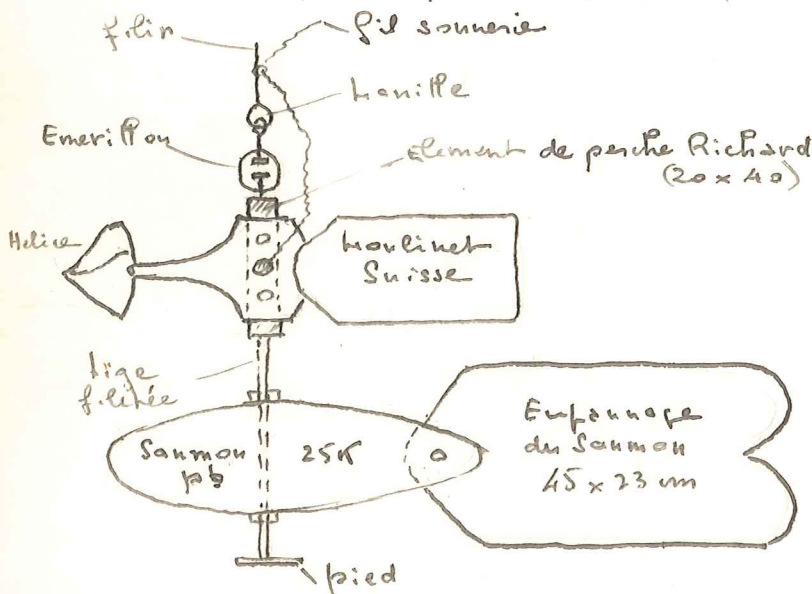 filin
fil sonnerie
Manille
Emerillon
Element de perche Richard
(20 x 40)
Helice
Moulinet
Suisse
tige
filetée
Saumon 25K
pb
Empannage
du Saumon
45 x 23 cm
pied